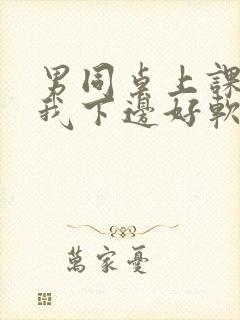 男同桌上課
我下邊好軟
萬家憂